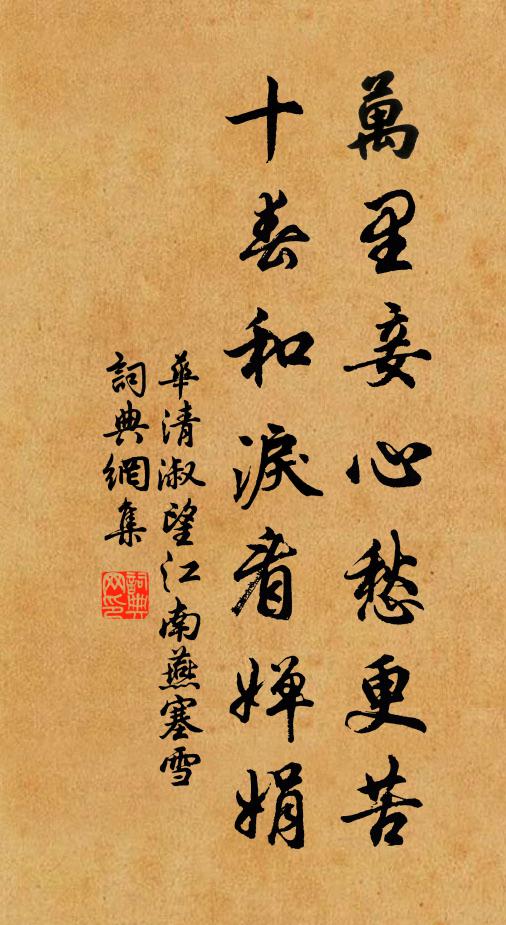 萬里妾心愁更苦
十春和淚看嬋娟
華清淑望江南燕塞雪
詞典網集
詞典网印